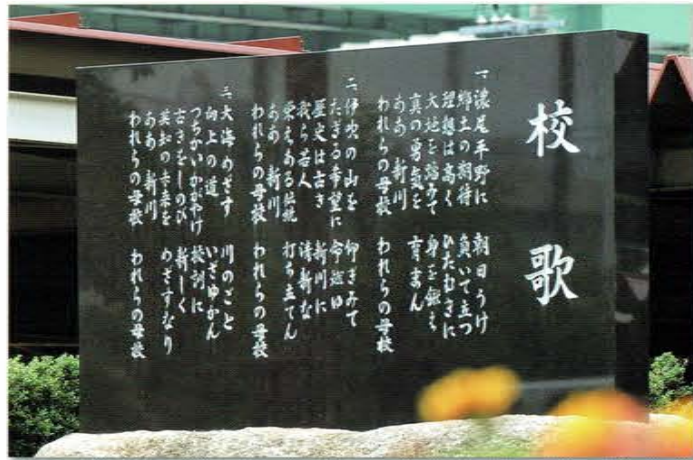 校歌
一、濃尾平野に 朝日うけ
郷土の期待 負いて立つ
理想は高く ひたむきに
大地を踏みて 身を鍛え
真の勇気を 育まん
ああ 新川
われらの母校 われらの母校
二、伊吹の山を 仰ぎみて
たぎる希望に 今燃ゆ
歴史は古き 新川に
我ら若人 清新な
栄えある伝統 打ち立てん
ああ 新川
われらの母校 われらの母校
三、大海めざす 川のごと
向上の道 いざゆかん
つちかいかがやけ 校訓に
古きをしのび 新しく
英知の未来を めざすなり
ああ 新川
われらの母校 われらの母校